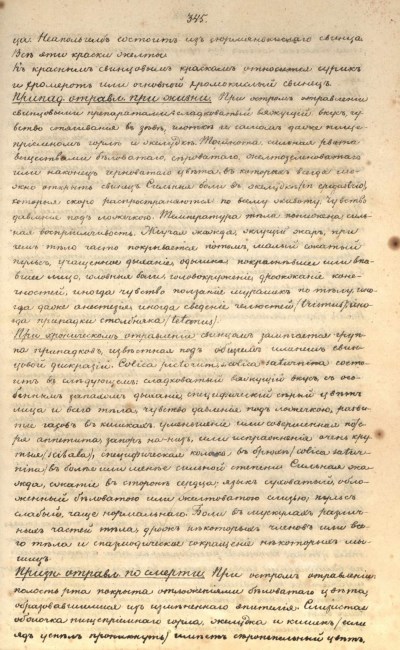 345.
ца. Неаполь состоитъ изъ сюрмянокислаго свинца
Всѣ эти краски желты.
Къ краснымъ свинцовымъ краскамъ относится сурикъ
и хромротъ или основной хромокислый свинецъ.
Припад. отравл. при жизни. При остромъ отравленіи
свинцовыми препаратами: сладковатый вяжущій вкусъ, чу-
вство стягиванія въ зѣвѣ, глоткѣ и самомъ даже пище-
пріемномъ горлѣ и желудкѣ. Тошнота сильная рвота
веществами бѣловатаго, сѣроватаго, желтозеленоватаго
или наконецъ черноватаго цвѣта, въ которыхъ всегда мо-
жно открыть свинецъ. Сильная боль въ желудкѣ
которая скоро распространяется по всему животу, чувство
давленія подъ ложкою. Температура тѣла понижена, силь-
ная воспріимчивость. Жгучая жажда, жгущій жаръ, при
чемъ тѣло часто покрывается потомъ, малый сжатый
пульсъ, учащенное дыханіе, одышка покраснѣвшее или впа-
вшее лицо, головные боли, головокруженіе, дрожжаніе коне-
чностей, иногда чувство ползанія мурашекъ по тѣлу, ино-
гда даже анестезія, иногда сведеніе челюстей /trismus/, ино-
гда припадки столбняка /tetanus/.
При хроническомъ отравленіи свинцомъ замѣчается группа
припадковъ, извѣстная подъ общимъ именемъ свин-
цовой дискразіи. Colica pictorum s. colica saturnina состо-
итъ въ слѣдующемъ: сладковатый вяжущій вкусъ, съ осо-
беннымъ запахомъ дыханіе, специфическій сѣрый цвѣтъ
лица и всего тѣла, чувство давленія подъ ложечкою, разви-
тіе газовъ въ кишкахъ, уменьшеніе или совершенная поте-
ря аппетита, запоръ на-низъ, или испражненія очень кру-
тыя /scibala/, специфическая колика въ брюхѣ /colica satur-
nina/ въ болѣе или менѣе сильной степени. Сильная жа-
жда, сжатіе въ сторонѣ сердца, языкъ суховатый, обло-
женный бѣловатою или желтоватою слизью, пульсъ
слабый, чаще нормальнаго. Боли въ мускулахъ различ-
ныхъ частей тѣла, дрожь нѣкоторыхъ членовъ или все-
го тѣла и спазмодическое сокращеніе нѣкоторыхъ мы-
шицъ.
Призн. отравл. по смерти. При остромъ отравленіи
полость рта покрыта отложеніями бѣловатаго цвѣта,
образовавшимися изъ измѣненнаго эпителія. Слизистая
оболочка пищепріемнаго горла, желудка и кишекъ /если
ядъ успѣлъ проникнуть/ имѣетъ цвѣтъ,